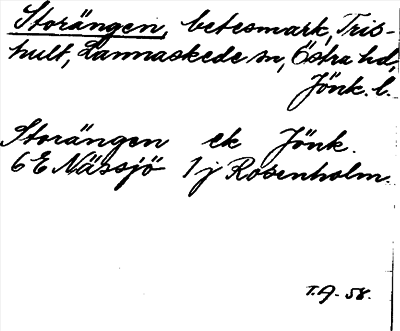 Storängen, betesmark, Tris-
hult, Lannaskede sn, Östra hd,
Jönk. l.
Storängen ek Jönk.
6 E Nässjö 1 j Rosenholm.
T.A. 58.